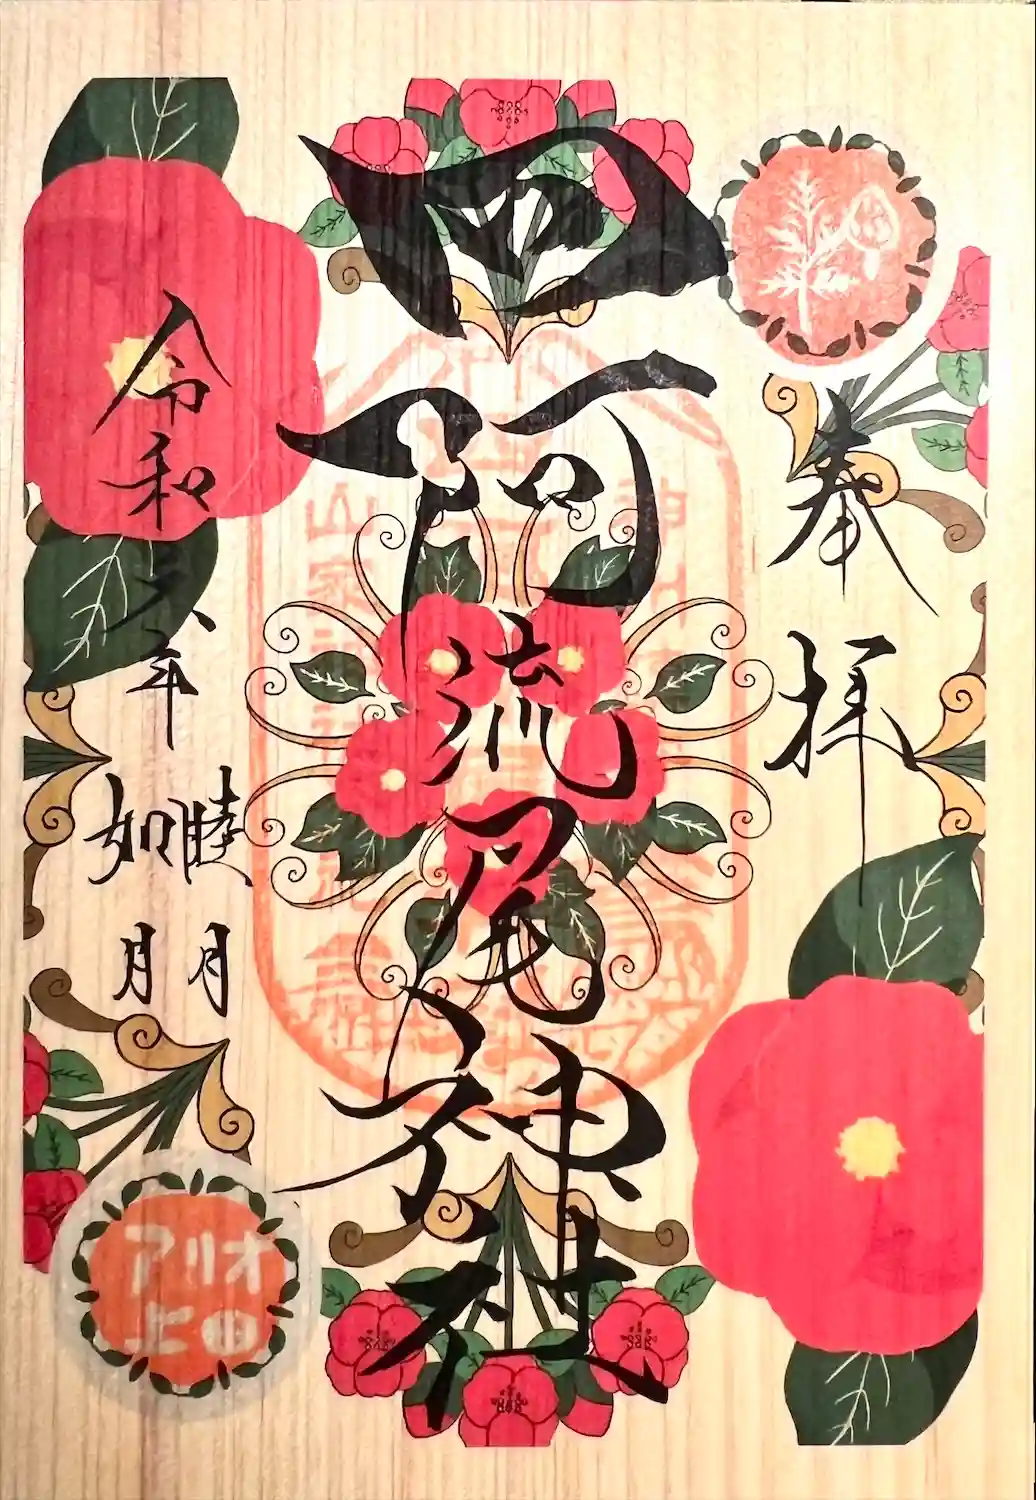 奉拝
四阿流尾神社
令和六年
睦月
如月
アリオ
上田